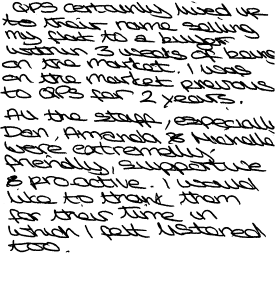 QPS certainly lived up
to their name selling
my flat to a buyer
within 3 weeks of being
on the market. I was
on the market previous
to QPS for 2 years.
All the staff, especially
Dan, Amanda & Michelle
were extremely
friendly, supportive
& proactive. I would
like to thank them
for their time in
which I felt listened
too.